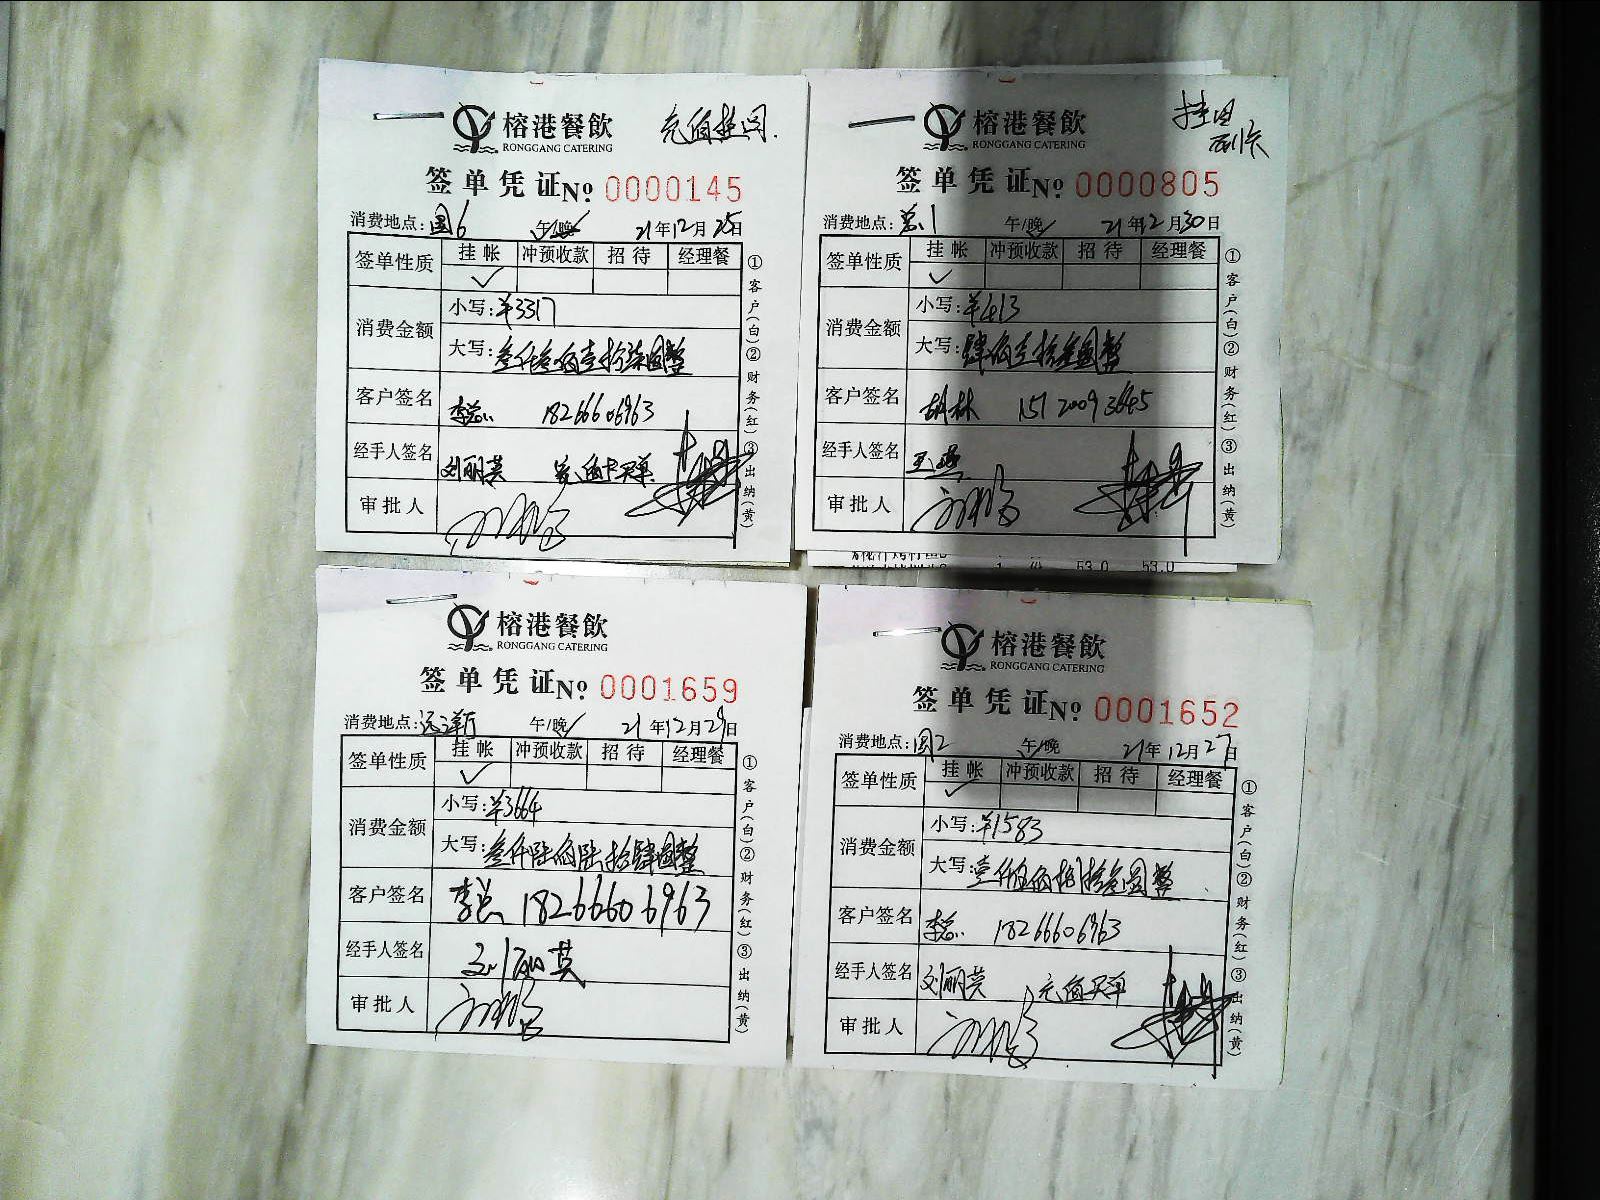 榕港餐飲
RONGGANG CATERING
充值挂
签单凭证№ 0000145
消费地点: 国6 午/晚 21年12月25日
签单性质 挂帐 冲预收款 招待 经理餐
消费金额 小写:¥3317
大写:叁仟叁佰壹拾柒圆整
客户签名 李总 18266606963
经手人签名 刘丽英 充值卡买单
审批人
①客户(白)②财务(红)③出纳(黄)
榕港餐飲
RONGGANG CATERING
签单凭证№ 0000805
消费地点: 总1 午/晚 21年12月30日
签单性质 挂帐 冲预收款 招待 经理餐
消费金额 小写:¥413
大写:肆佰壹拾叁圆整
客户签名 胡林 15120093645
经手人签名 王
审批人
①客户(白)②财务(红)③出纳(黄)
1 份 53.0 53.0
榕港餐飲
RONGGANG CATERING
签单凭证№ 0001659
消费地点: 远洋厅 午/晚 21年12月29日
签单性质 挂帐 冲预收款 招待 经理餐
消费金额 小写:¥3664
大写:叁仟陆佰陆拾肆圆整
客户签名 李总 18266606963
经手人签名 刘丽英
审批人
①客户(白)②财务(红)③出纳(黄)
榕港餐飲
RONGGANG CATERING
签单凭证№ 0001652
消费地点: 国2 午/晚 21年12月27日
签单性质 挂帐 冲预收款 招待 经理餐
消费金额 小写:¥1583
大写:壹仟伍佰捌拾叁圆整
客户签名 李总 18266606963
经手人签名 刘丽英 充值买单
审批人
①客户(白)②财务(红)③出纳(黄)